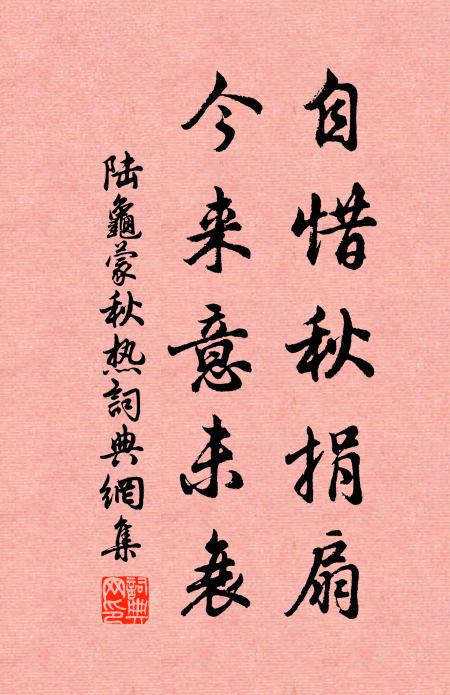 自惜秋捐扇
今来意未衰
陆龜蒙秋热詞典網集
詞典网印